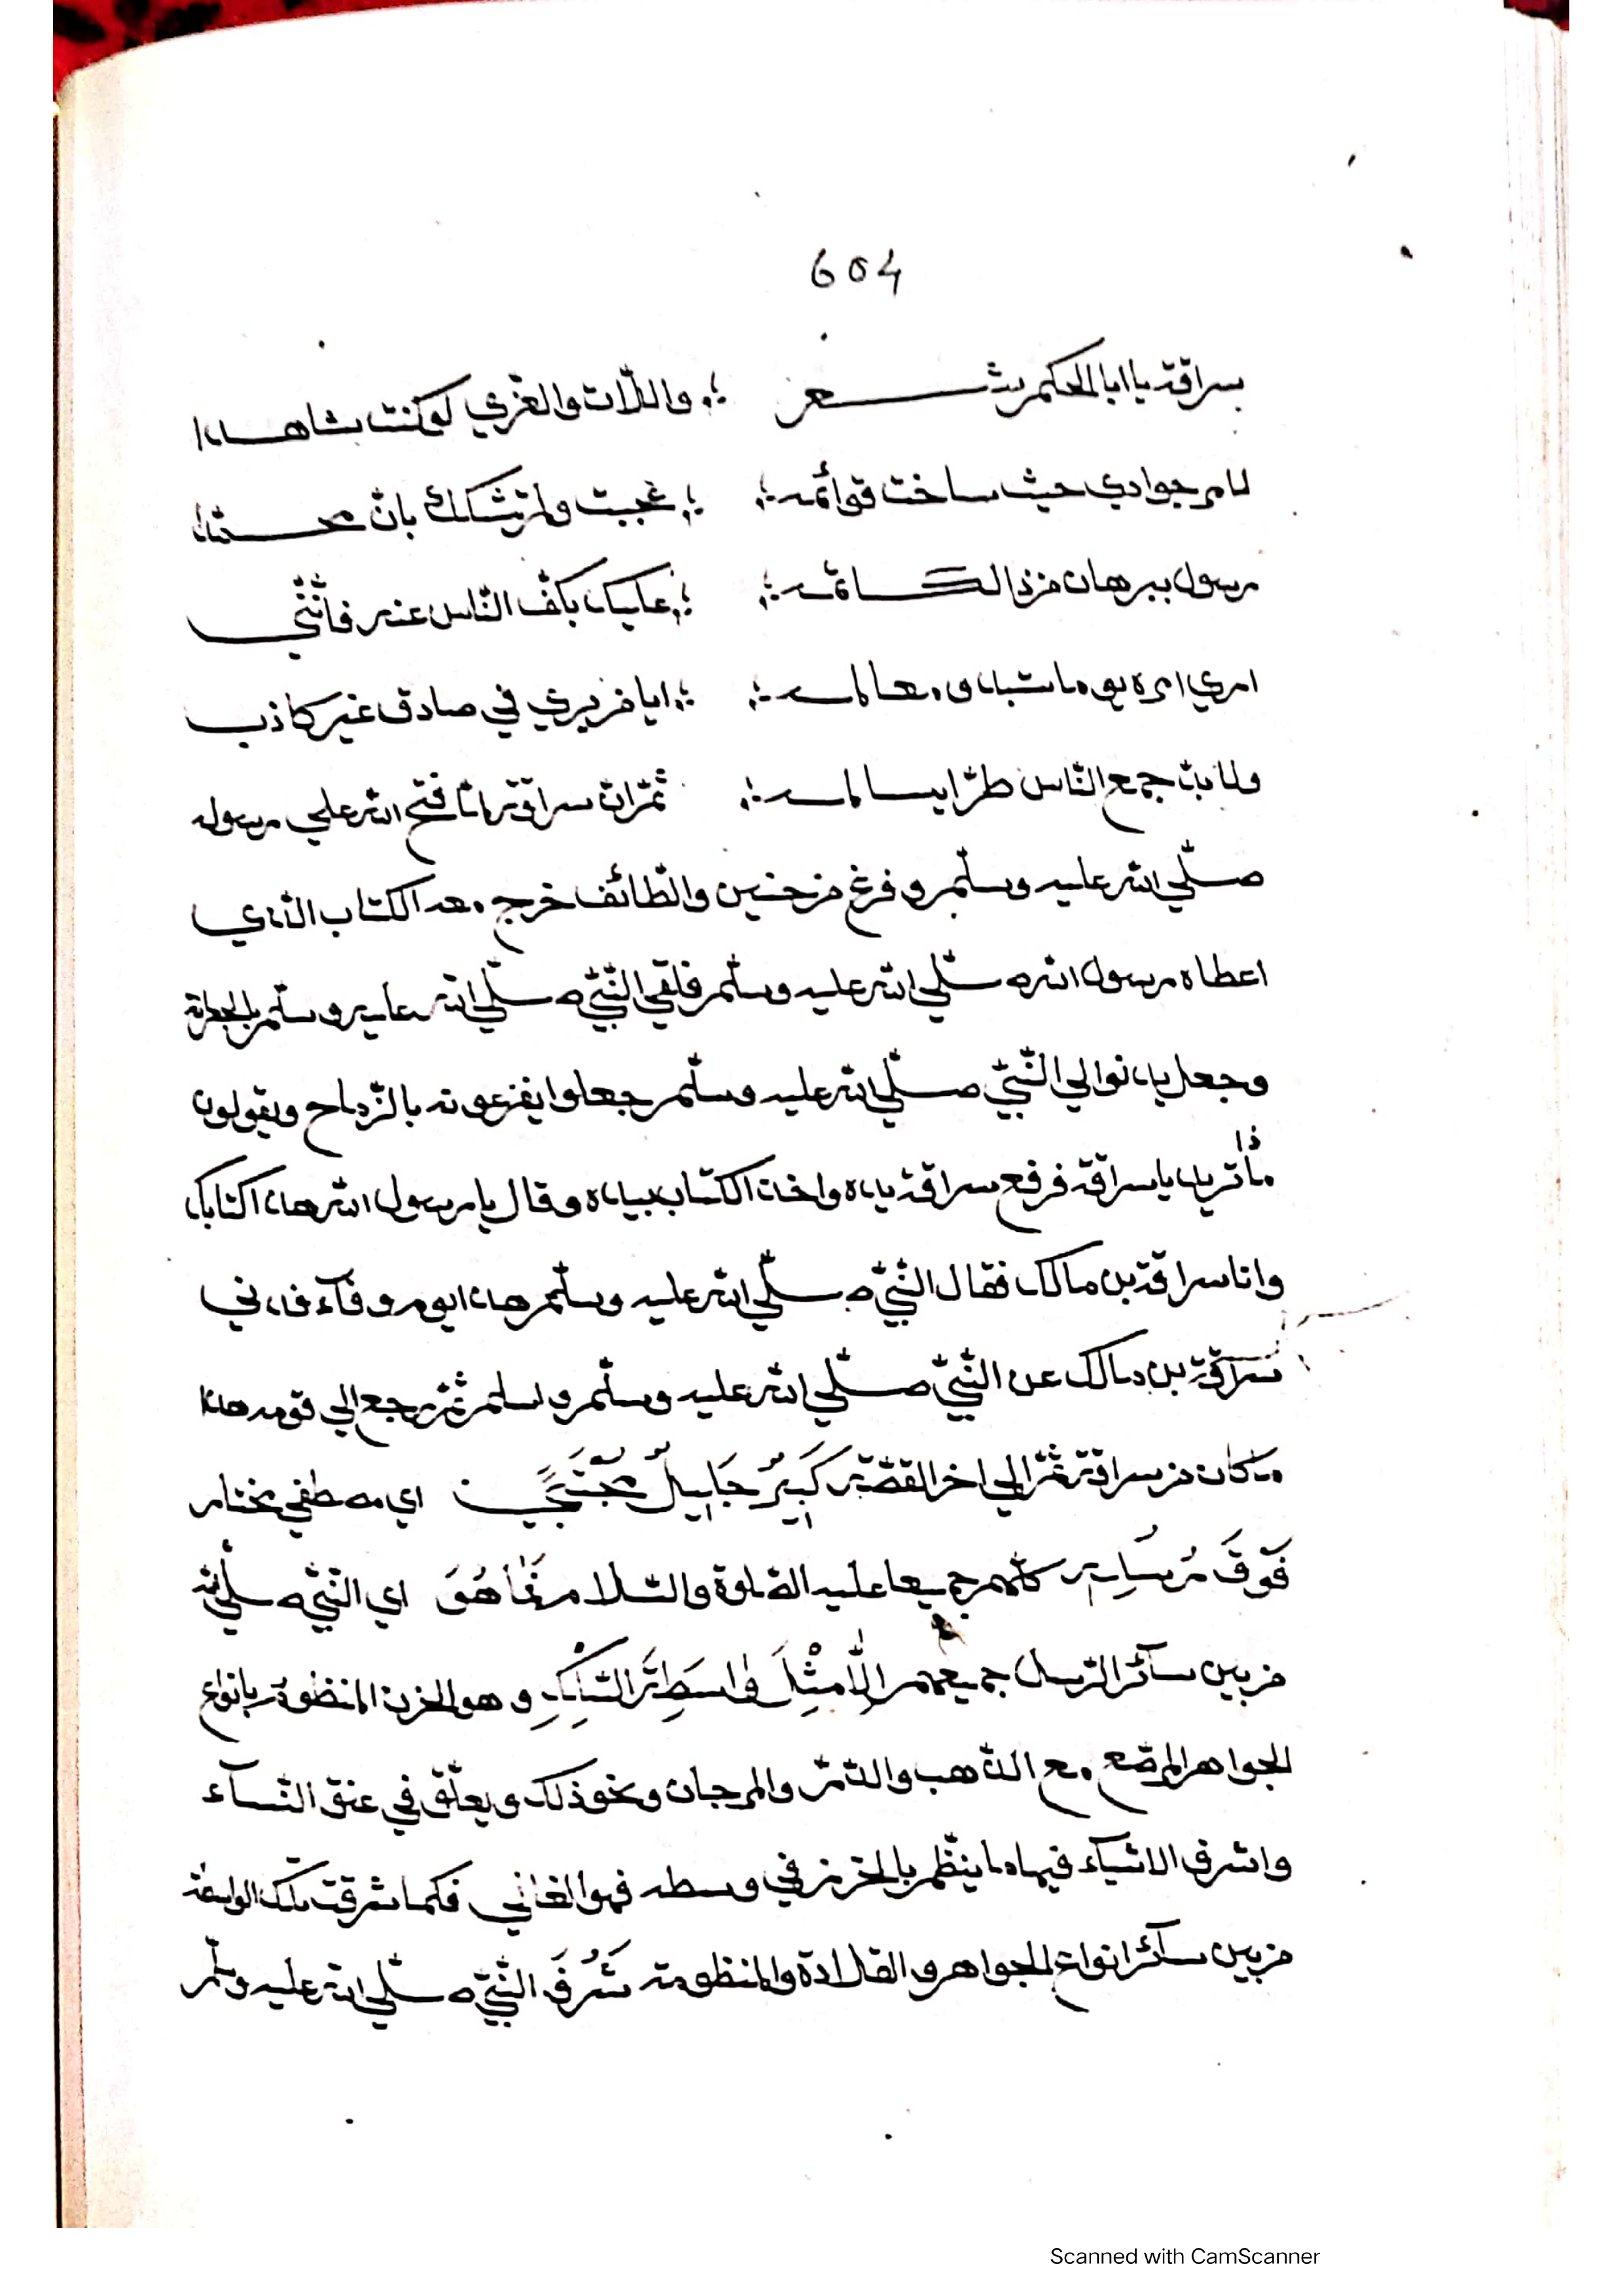 604
سراقة يا ابا الحكم شعر ؛ واللّات والعزي لوكنت شاهدا
لامر جوادي حيث ساخت قوائمه ؛ عجبت ولم تشكك بانّ محمّدا
رسول ببرهان من ذا كاتمه ؛ عليك بكفّ النّاس عنه فانّني
اري امره يوما ستبدو معالمه ؛ ايا من يري في صادق غير كاذب
جمع النّاس طرّا يسالمه ؛ ثمّ انّ سراقة لمّا فتح الله علي رسوله
صلّي الله عليه وسلّم و فرغ من حنين والطّائف خرج معه الكتاب الّذي
اعطاه رسول الله صلّي الله عليه وسلّم فلقي النّبيّ صلّي الله عليه وسلّم بالجعرانة
وجعل يدنوا الي النّبيّ صلّي الله عليه وسلّم جعلوا يفزعونه بالرّماح ويقولون
ماذا تريد يا سراقة فرفع سراقة يده واخذ الكتاب بيده وقال يا رسول الله هذا كتابك
وانا سراقة بن مالك فقال النّبيّ صلّي الله عليه وسلّم هذا يوم وفآء فدني
سراقة بن مالك عن النّبيّ صلّي الله عليه وسلّم و اسلم ثمّ رجع الي قومه هذا
ما كان من سراقة ثمّ الي اخر القصّة كَبِيرٌ جَلِيلٌ مُجْتَبًي اي مصطفي مختار
فَوْقَ رُسْلِهِ كلّهم جميعا عليه الصّلوة والسّلام فَمَا هُوَ اي النّبيّ صلّي الله
من بين سآئر الرّسل جميعهم اِلَّا مِثْلَ وَاسِطَةِ السِّلْكِ و هو الخزن المنظومة بانواع
الجواهر المرصّع مع الذّهب والدّرّ والمرجان ونحو ذلك ويعلّق في عنق النّسآء
واشرف الاشيآء فيها ما ينظّم بالخرز في وسطه فهو الغاني فكما شرقت تلك الواسطة
من بين سآئر انواع الجواهر و القلادة والمنظومة شَرُفَ النّبيّ صلّي الله عليه وسلّم
Scanned with CamScanner